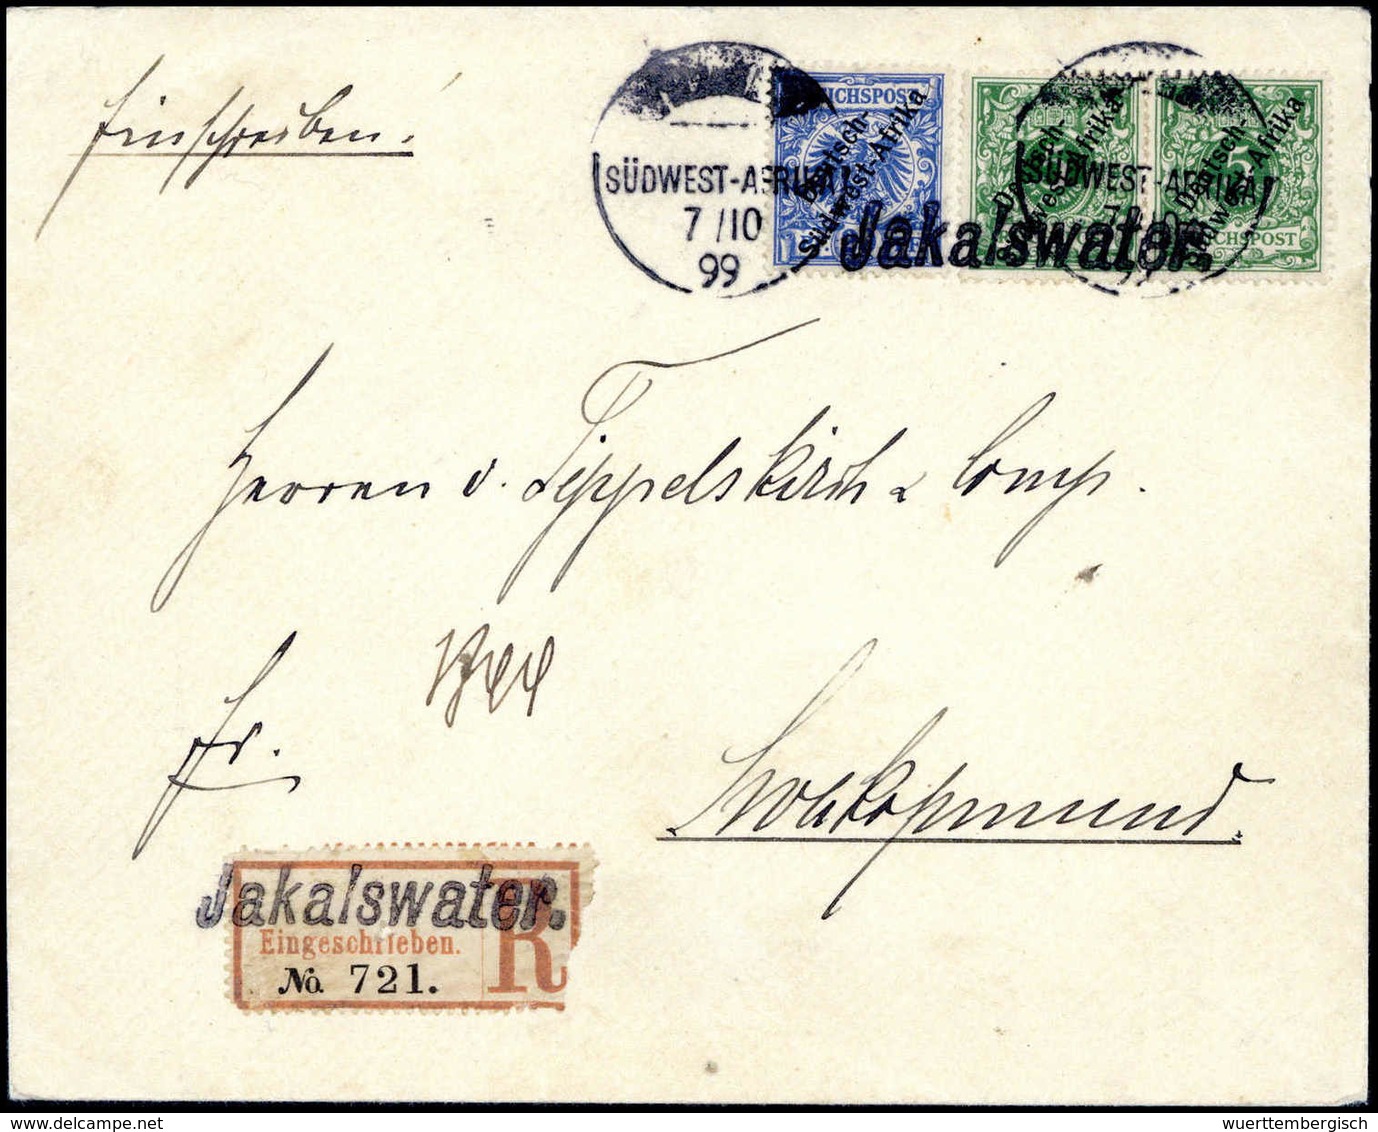 Einschreiben.
SÜDWEST-AFRIKA
7/10
99
REICHSPOST
Deutsch-
Südwest-Afrika
Deutsch-
Südwest-Afrika
Deutsch-
Südwest-Afrika
5
REICHSPOST
SÜDWEST-AFRIKA
Jakalswater.
Herren v. Tippelskirch & Comp.
Fr.
Swakopmund
Jakalswater.
Eingeschrieben.
R
No. 721.
wuerttembergisch